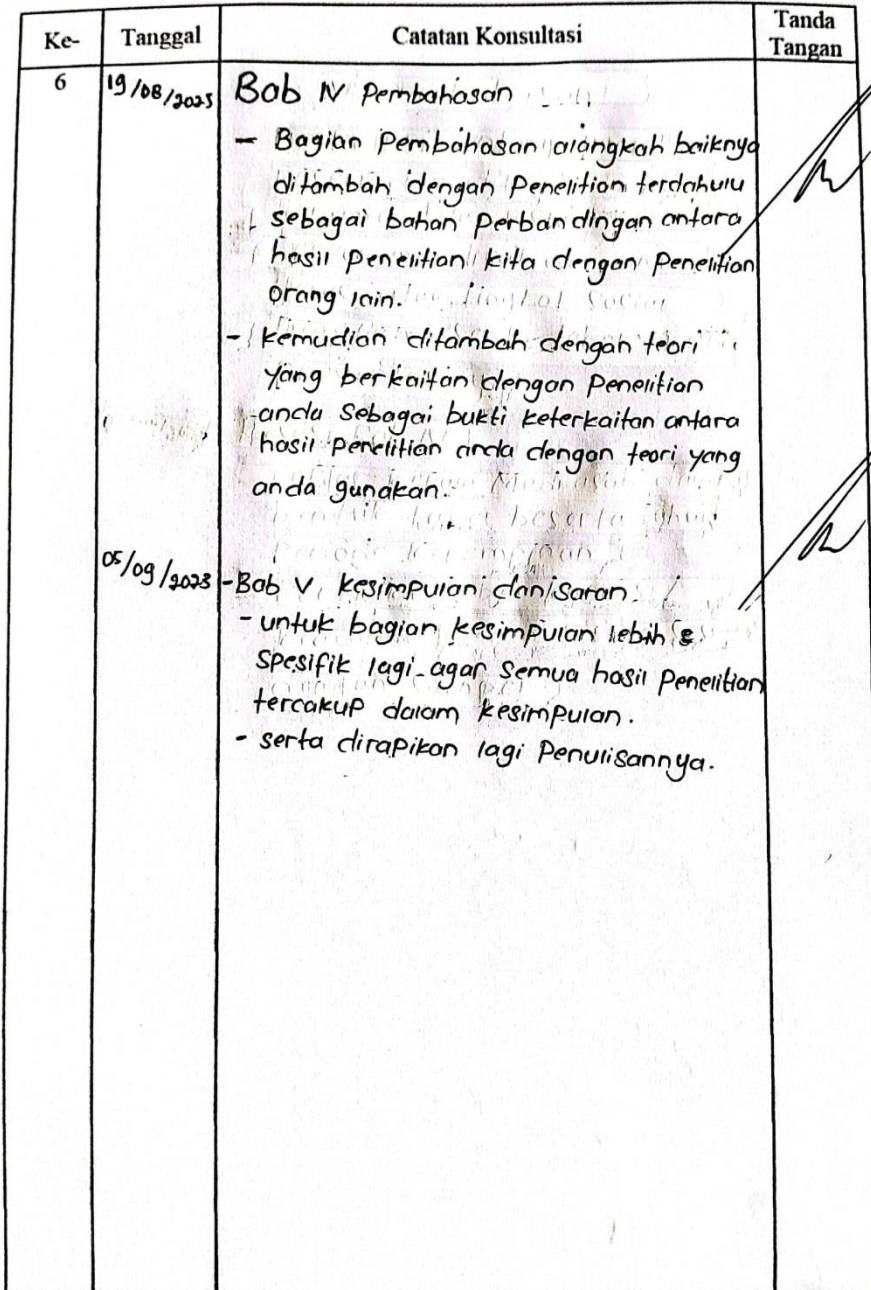 Ke- Tanggal Catatan Konsultasi Tanda Tangan
6 19/08/2023 Bab IV Pembahasan
- Bagian Pembahasan alangkah baiknya
ditambah dengan Penelitian terdahulu
sebagai bahan Perbandingan antara
hasil penelitian kita dengan Penelitian
orang lain.
- kemudian ditambah dengan teori
yang berkaitan dengan Penelitian
anda sebagai bukti keterkaitan antara
hasil penelitian anda dengan teori yang
anda gunakan.
05/09/2023 -Bab V. kesimpulan dan saran.
- untuk bagian kesimpulan lebih
spesifik lagi agar semua hasil Penelitian
tercakup dalam kesimpulan.
- serta dirapikan lagi Penulisannya.